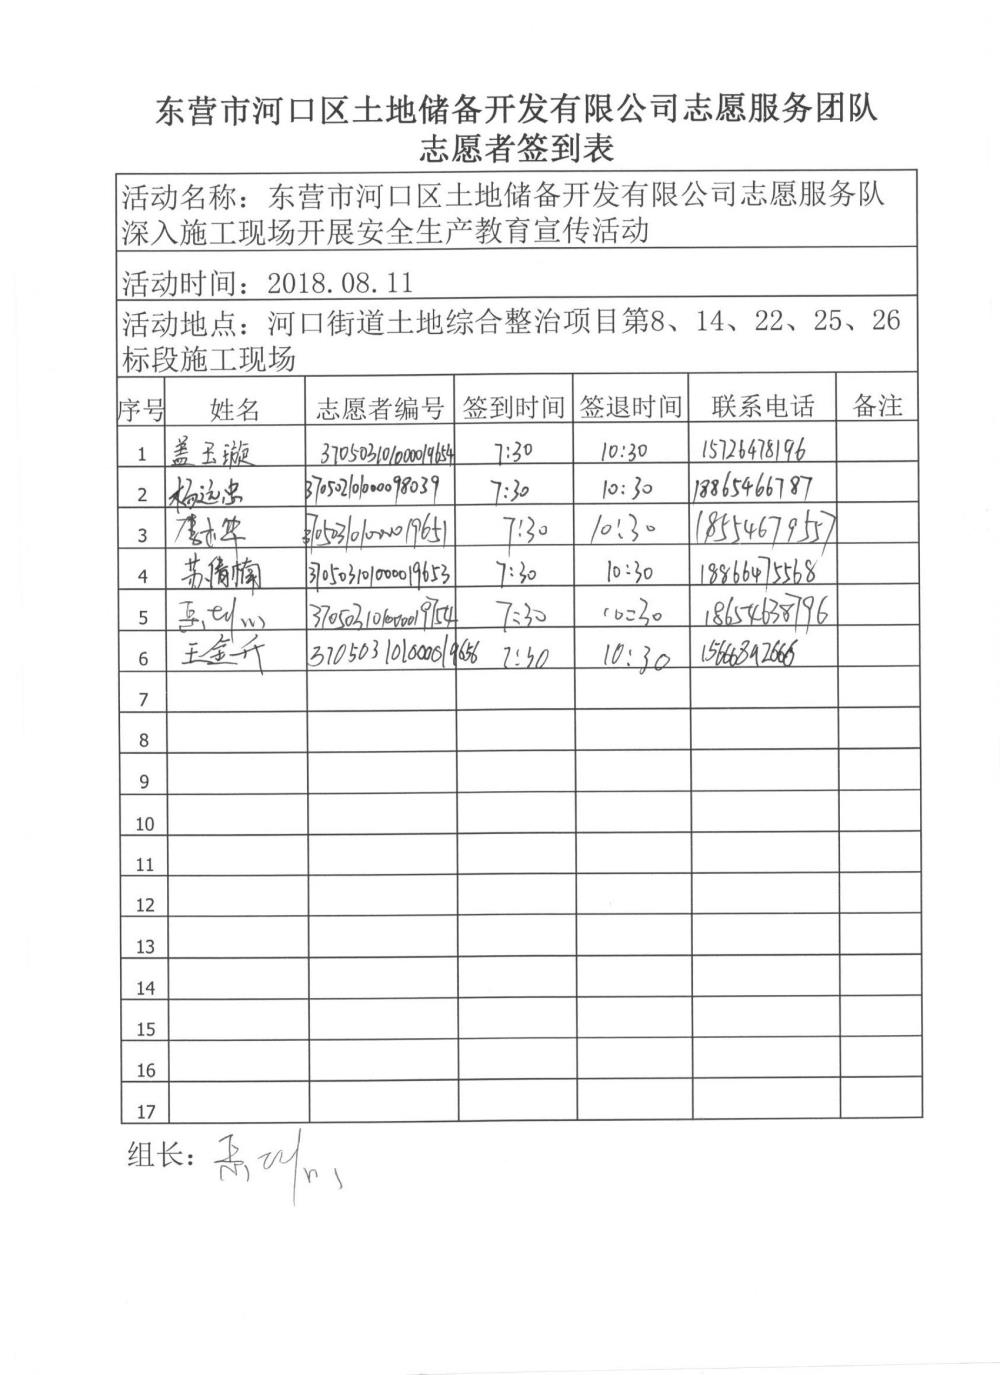 东营市河口区土地储备开发有限公司志愿服务团队
志愿者签到表
活动名称：东营市河口区土地储备开发有限公司志愿服务队
深入施工现场开展安全生产教育宣传活动
活动时间：2018.08.11
活动地点：河口街道土地综合整治项目第8、14、22、25、26
标段施工现场
序号 姓名 志愿者编号 签到时间 签退时间 联系电话 备注
1 盖玉璇 370503101000019654 7:30 10:30 15726478196
2 杨远忠 370502101000098039 7:30 10:30 18865466787
3 370503101000019651 7:30 10:30 18554679557
4 苏倩楠 370503101000019653 7:30 10:30 18866475568
5 370503101000019754 7:30 10:30 18654638796
6 王金升 370503101000019656 7:30 10:30 15666392666
7
8
9
10
11
12
13
14
15
16
17
组长：